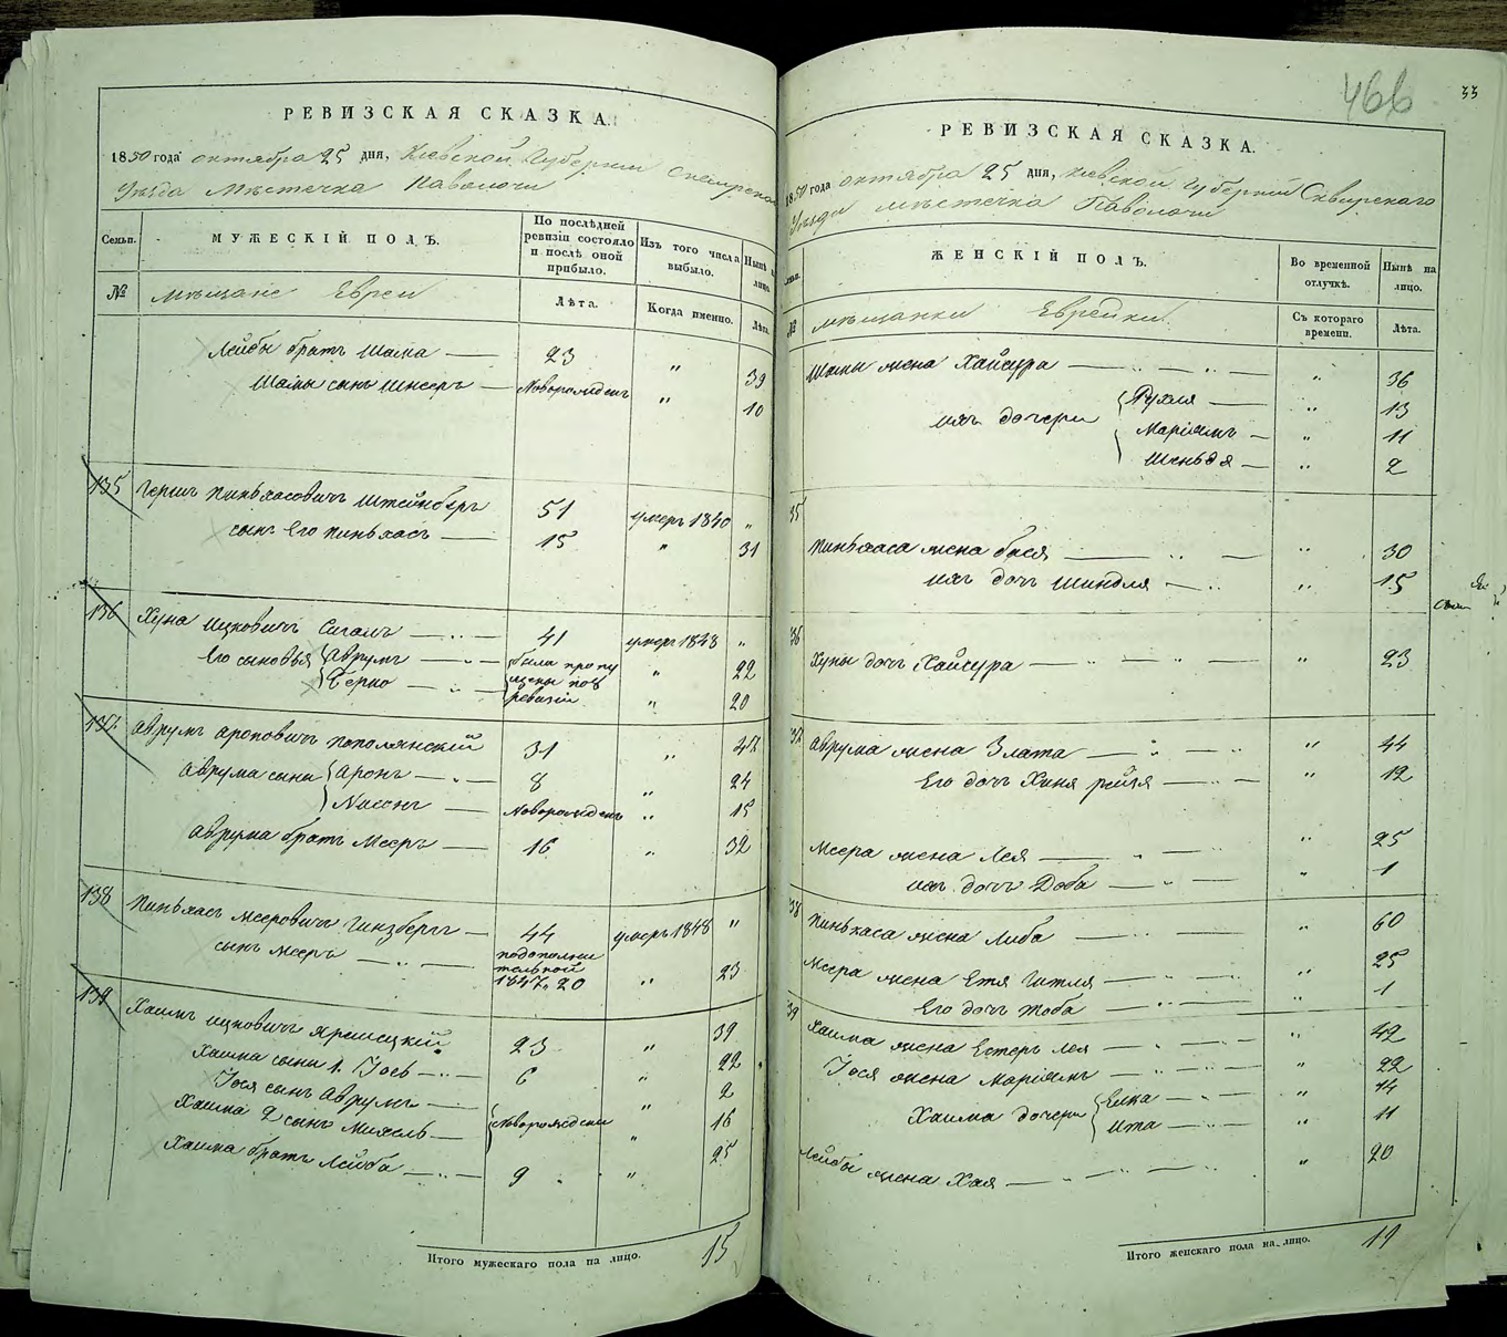 РЕВИЗСКАЯ СКАЗКА.
1850 года октября 25 дня, Киевской Губернии Сквирскаго
Уезда Местечка Паволочи
Семьи. МУЖЕСКІЙ ПОЛЪ. По последней ревизіи состояло и после оной прибыло. Изъ того числа выбыло. Ныне на лицо.
№ Мещане Евреи Лѣта. Когда именно. Лѣта.
Лейбы братъ Шама 23 " 39
Шамы сынъ Шнееръ Новорожденъ " 10
135 Гершъ Пиньхасовичъ Штейнбергъ 51 умеръ 1840 "
сынъ Его Пиньхасъ 15 " 31
136 Хуна Ицковичъ Сигалъ 41 умеръ 1848 "
Его сыновья Аврумъ были пропу " 22
Берко щены по 8 ревизіи " 20
137 Аврумъ Ароновичъ Пополянскій 31 " 47
Аврума сыны Аронъ 8 " 24
Нисонъ Новорожденъ " 15
Аврума братъ Мееръ 16 " 32
138 Пиньхасъ Мееровичъ Гинзбергъ 44 умеръ 1848 "
сынъ Мееръ подополни
тельной
1847. 20 " 23
139 Хаимъ Ицковичъ Ярмицкій 23 " 39
Хаима сыны 1. Іось 6 " 22
Іося сынъ Аврумъ " 2
Хаима 2 сынъ Михель Новорождены " 16
Хаима братъ Лейба 9 " 25
Итого мужескаго пола на лицо. 15
466
33
РЕВИЗСКАЯ СКАЗКА.
1850 года октября 25 дня, Киевской Губерніи Сквирскаго
Уезда местечка Паволочи
ЖЕНСКІЙ ПОЛЪ. Во временной отлучкѣ. Нынѣ на лицо.
№ Мещанки Еврейки Съ котораго времени. Лѣта.
Шамы жена Хайсура " 36
ихъ дочери Рухля " 13
Маріямъ " 11
Шеньдя " 2
35
Пиньхаса жена Бася " 30
ихъ дочь Шиндля " 15
36
Хуны дочь Хайсура " 23
37 Аврума жена Злата " 44
Его дочь Хиня рейзя " 12
Меера жена Лея " 25
ихъ дочь Доба " 1
38 Пиньхаса жена Либа " 60
Меера жена Етя Гитля " 25
Его дочь Тоба " 1
39 Хаима жена Естеръ Лея " 42
Іося жена Маріямъ " 22
Хаима дочери Елка " 14
Ита " 11
Лейбы жена Хая " 20
Итого женскаго пола на лицо. 19